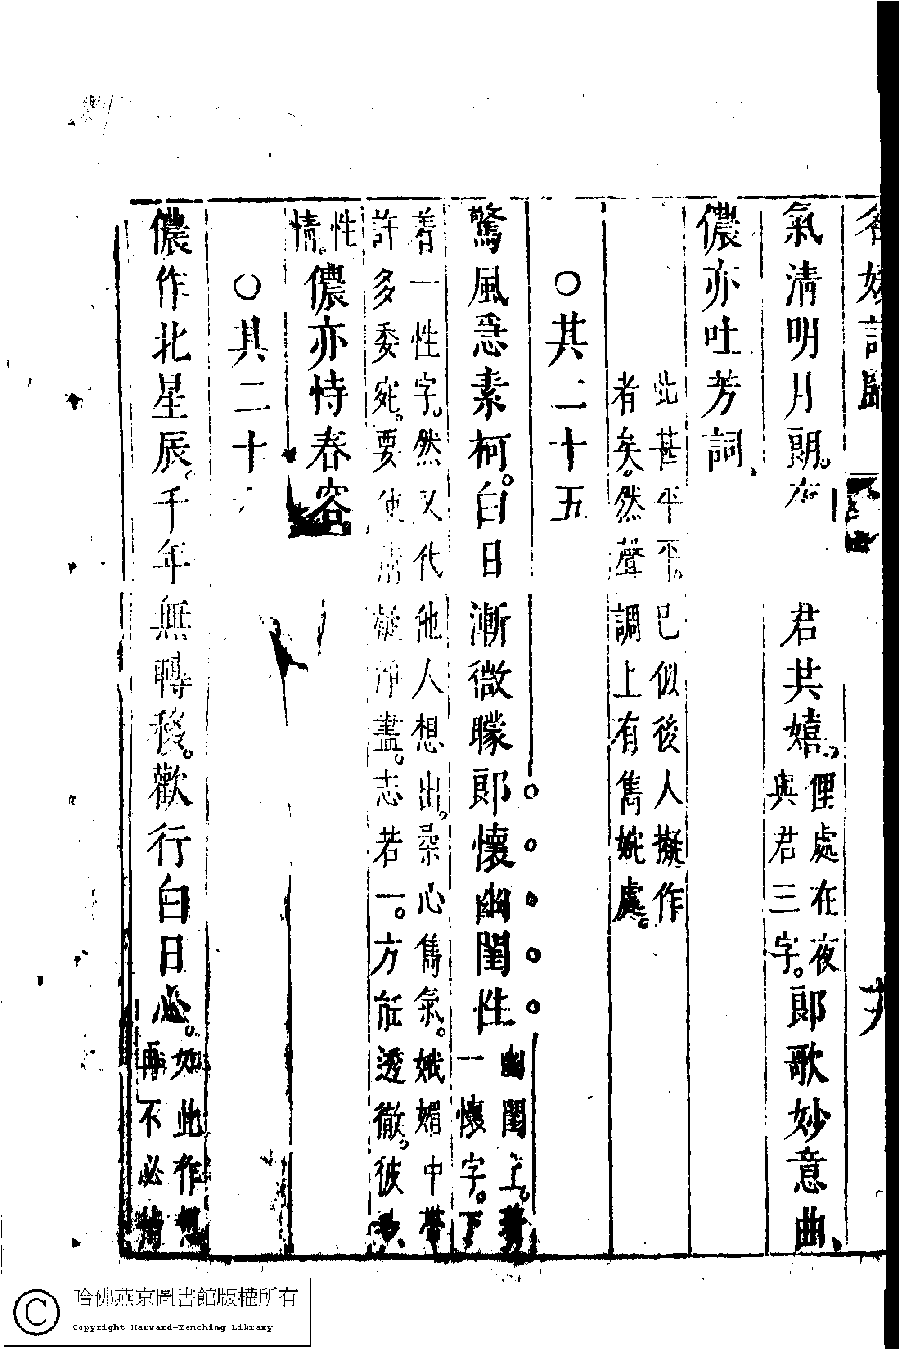 名媛詩歸
氣清明月朗。夜 君共嬉。俚處在夜
與君三字。郎歌妙意曲、
儂亦吐芳詞、
此甚平平。已似後人擬作
者矣。然聲調上有雋婉處。
○其二十五
驚風急素柯。白日漸微矇郎懷幽閨性 幽閨上。著
一懷字。下
着一性字。然又代他人想出。柔心雋氣。娥媚中帶
許多委宛。要使 凝凈盡。志若一。方能透徹。彼
性情。儂亦恃春容
○其二十
儂作北星辰。千年無轉移。歡行白日心。如此作想
再不必